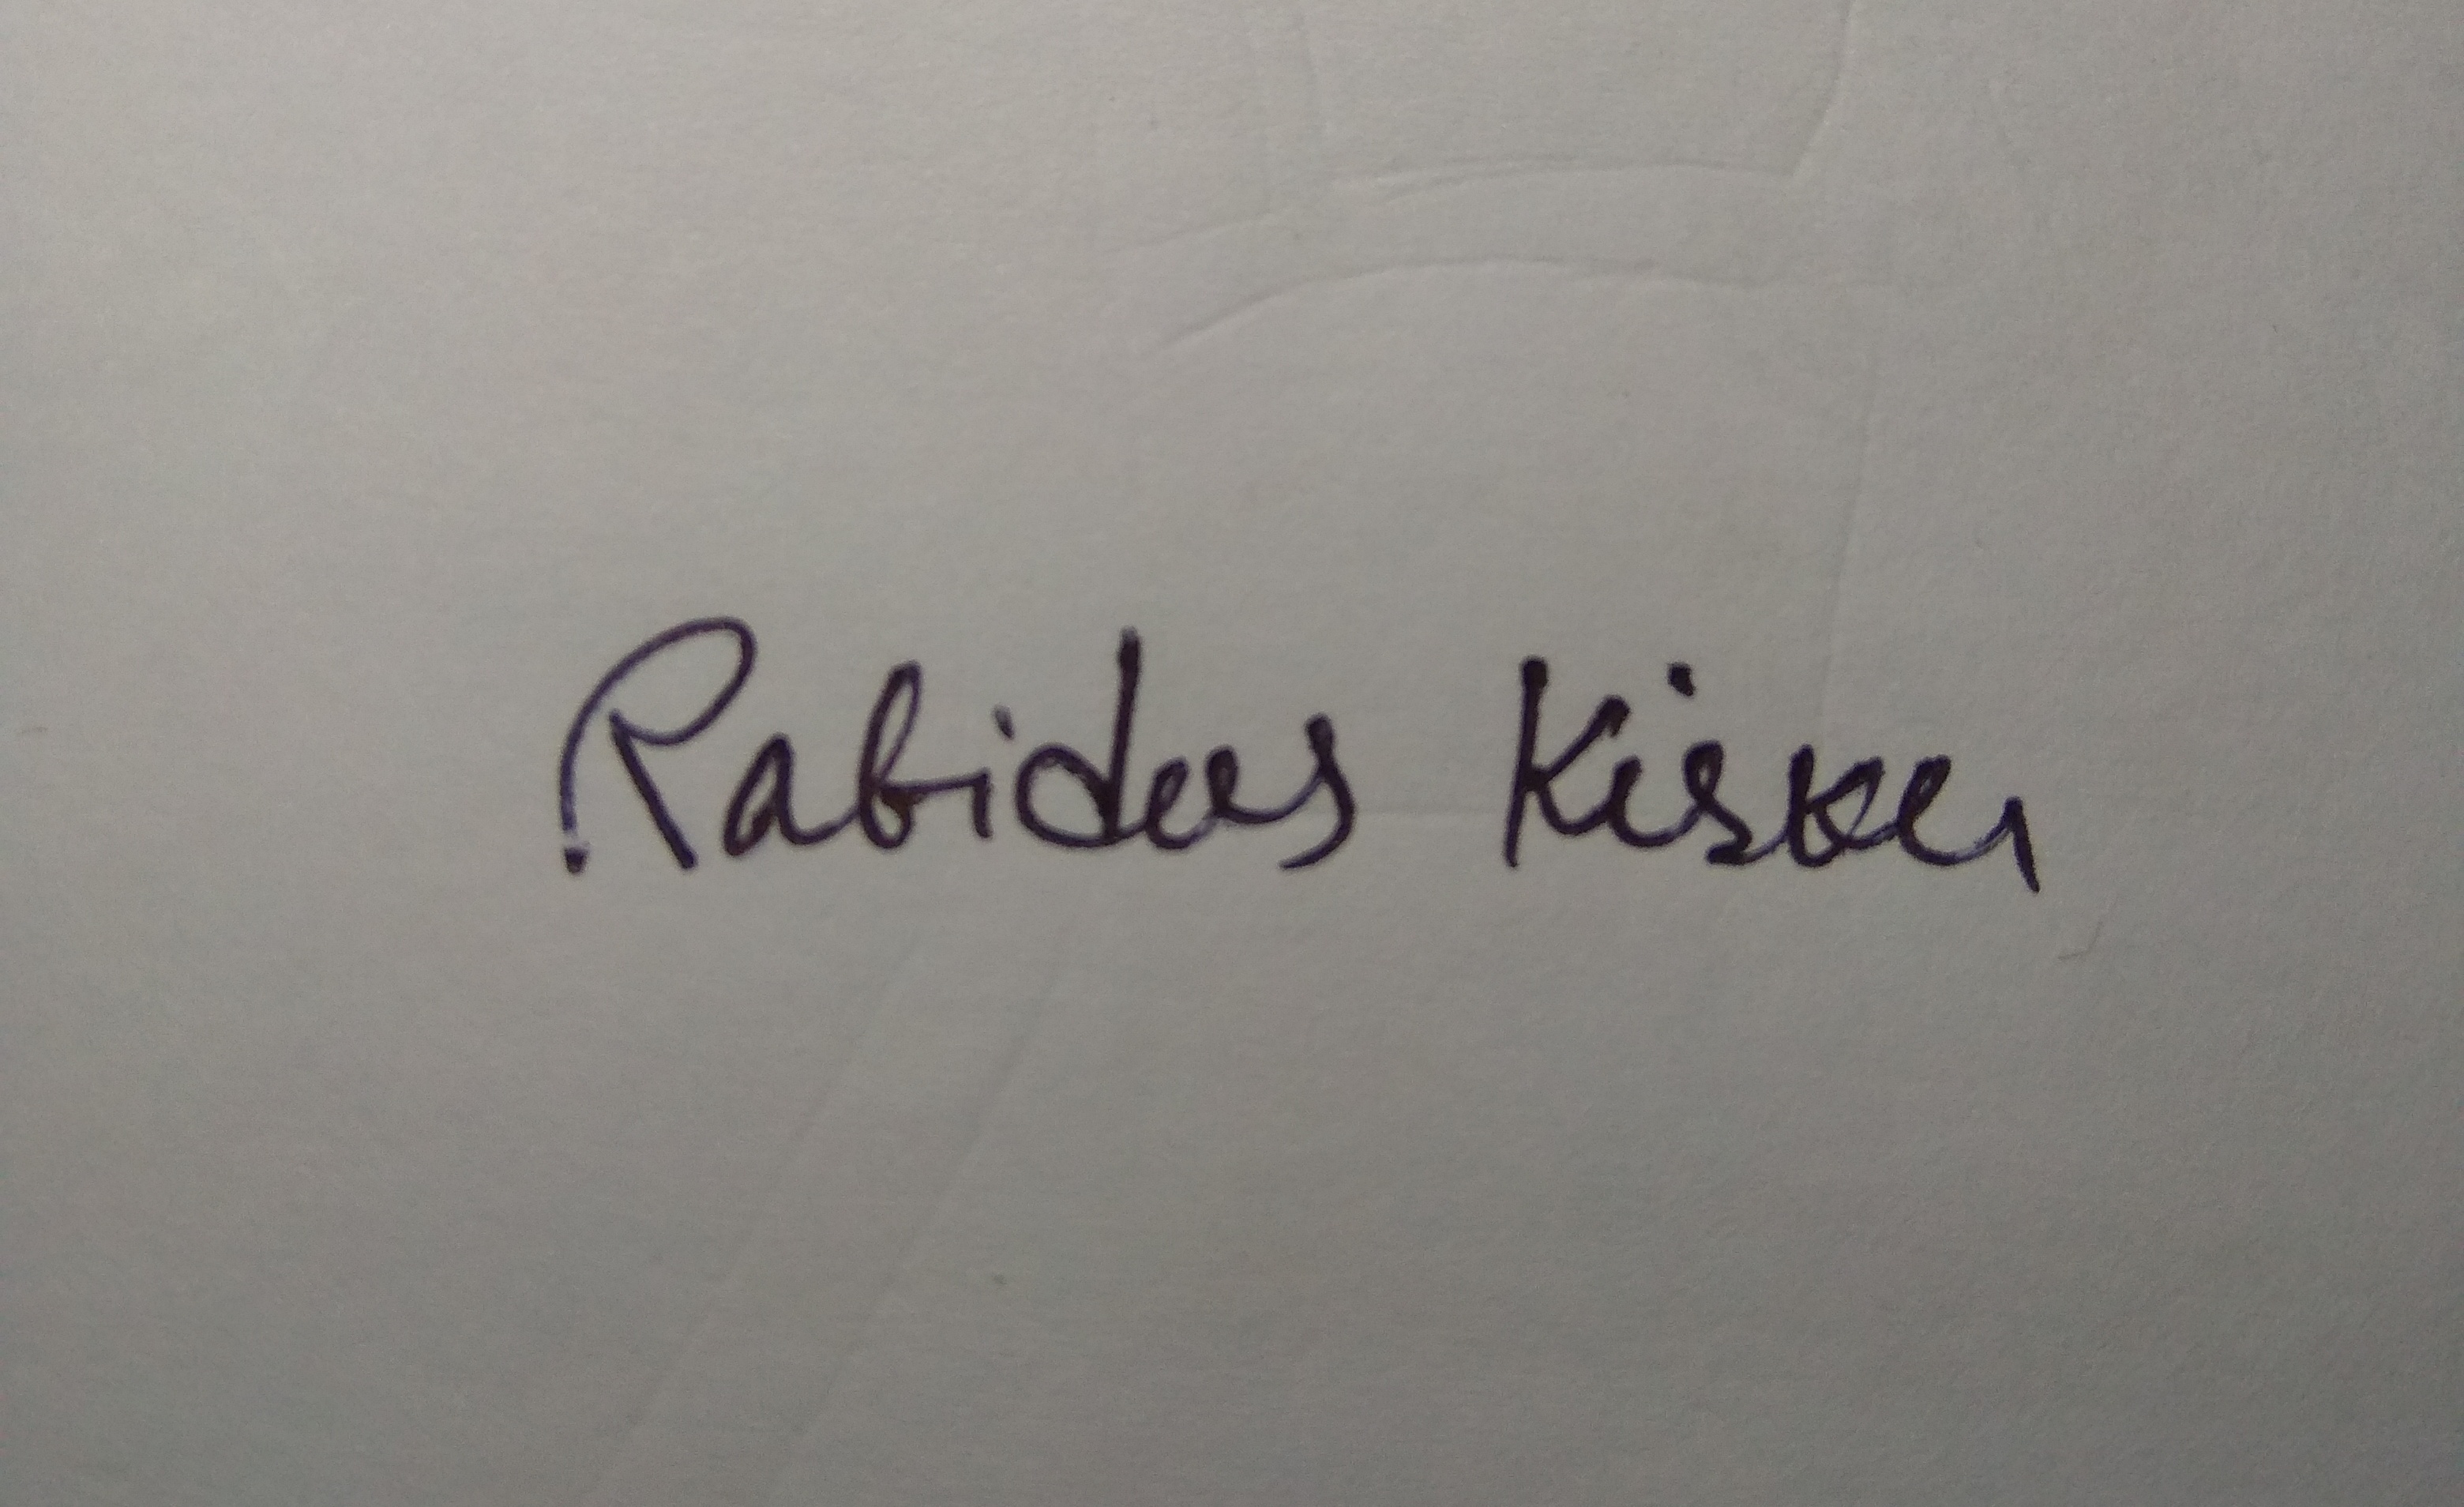 Rabidas Kisku